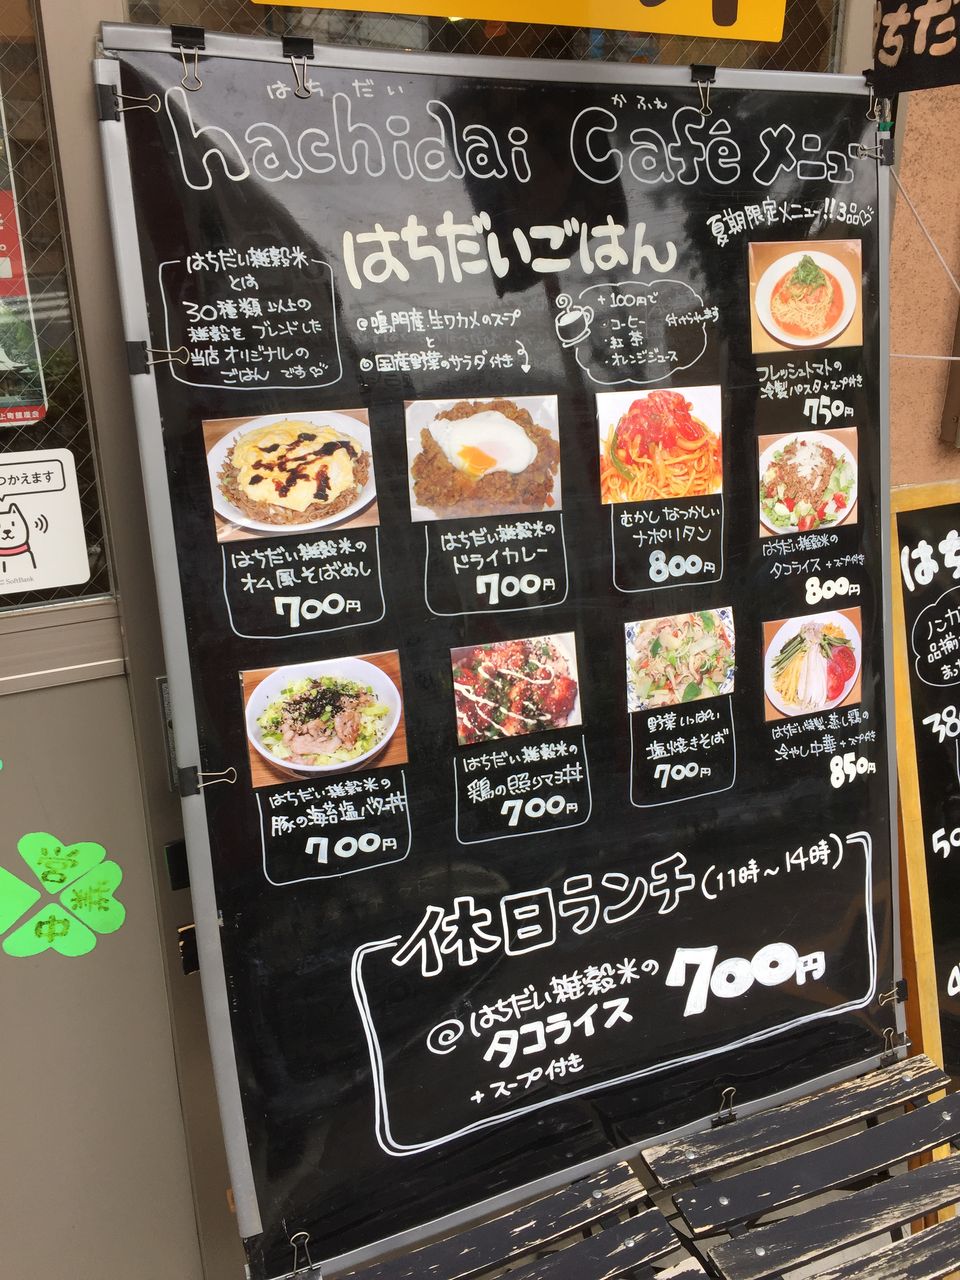 はちだい
かふぇ
hachidai Café メニュー
はちだいごはん
夏期限定メニュー!!3品♡
はちだい雑穀米
とは
30種類以上の
雑穀をブレンドした
当店オリジナルの
ごはんです♡
◎鳴門産生ワカメのスープ
と
◎国産野菜のサラダ付き
+100円で
・コーヒー
・紅茶
・オレンジジュース
付けられます
フレッシュトマトの
冷製パスタ+スープ付き
750円
はちだい雑穀米の
オム風そばめし
700円
はちだい雑穀米の
ドライカレー
700円
むかしなつかしい
ナポリタン
800円
はちだい雑穀米の
タコライス+スープ付き
800円
はちだい雑穀米の
豚の海苔塩バタ丼
700円
はちだい雑穀米の
鶏の照りマヨ丼
700円
野菜いっぱい
塩焼きそば
700円
はちだい特製蒸し鶏の
冷やし中華+スープ付き
850円
休日ランチ(11時〜14時)
@はちだい雑穀米の
タコライス
+スープ付き
700円
つかえます
SoftBank
営業中
上町銀座会
ちだ
はち
ノンカ
品揃
まっ
38
50